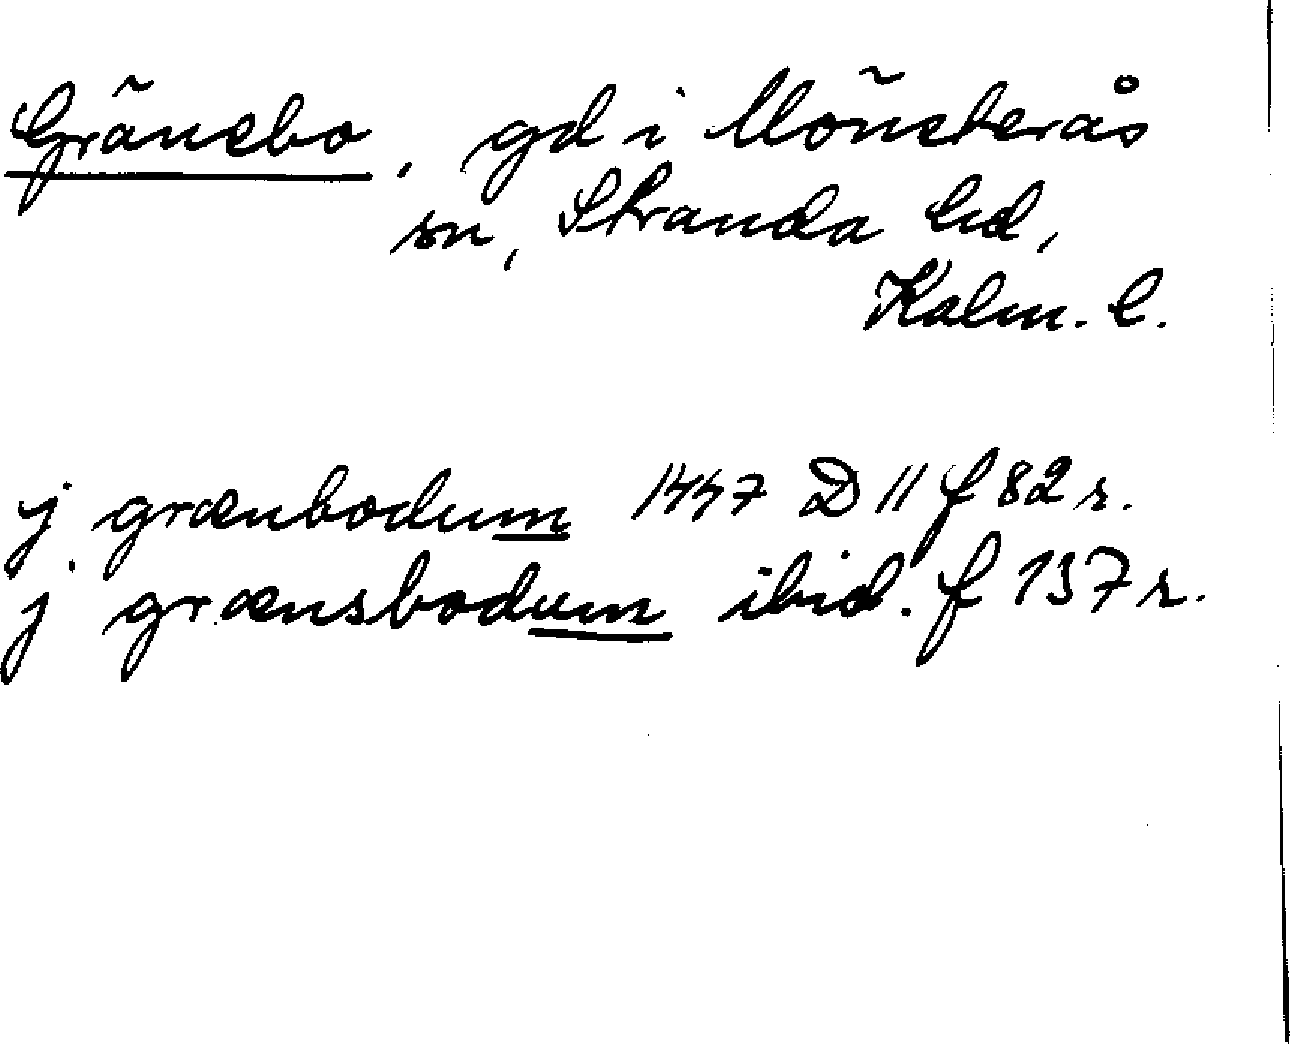 Gränsbo, gd i Mönsterås
sn, Stranda hd,
Kalm. l.
j grænbodum 1447 D 11 f 82 r.
j grænsbodum ibid. f 137 r.